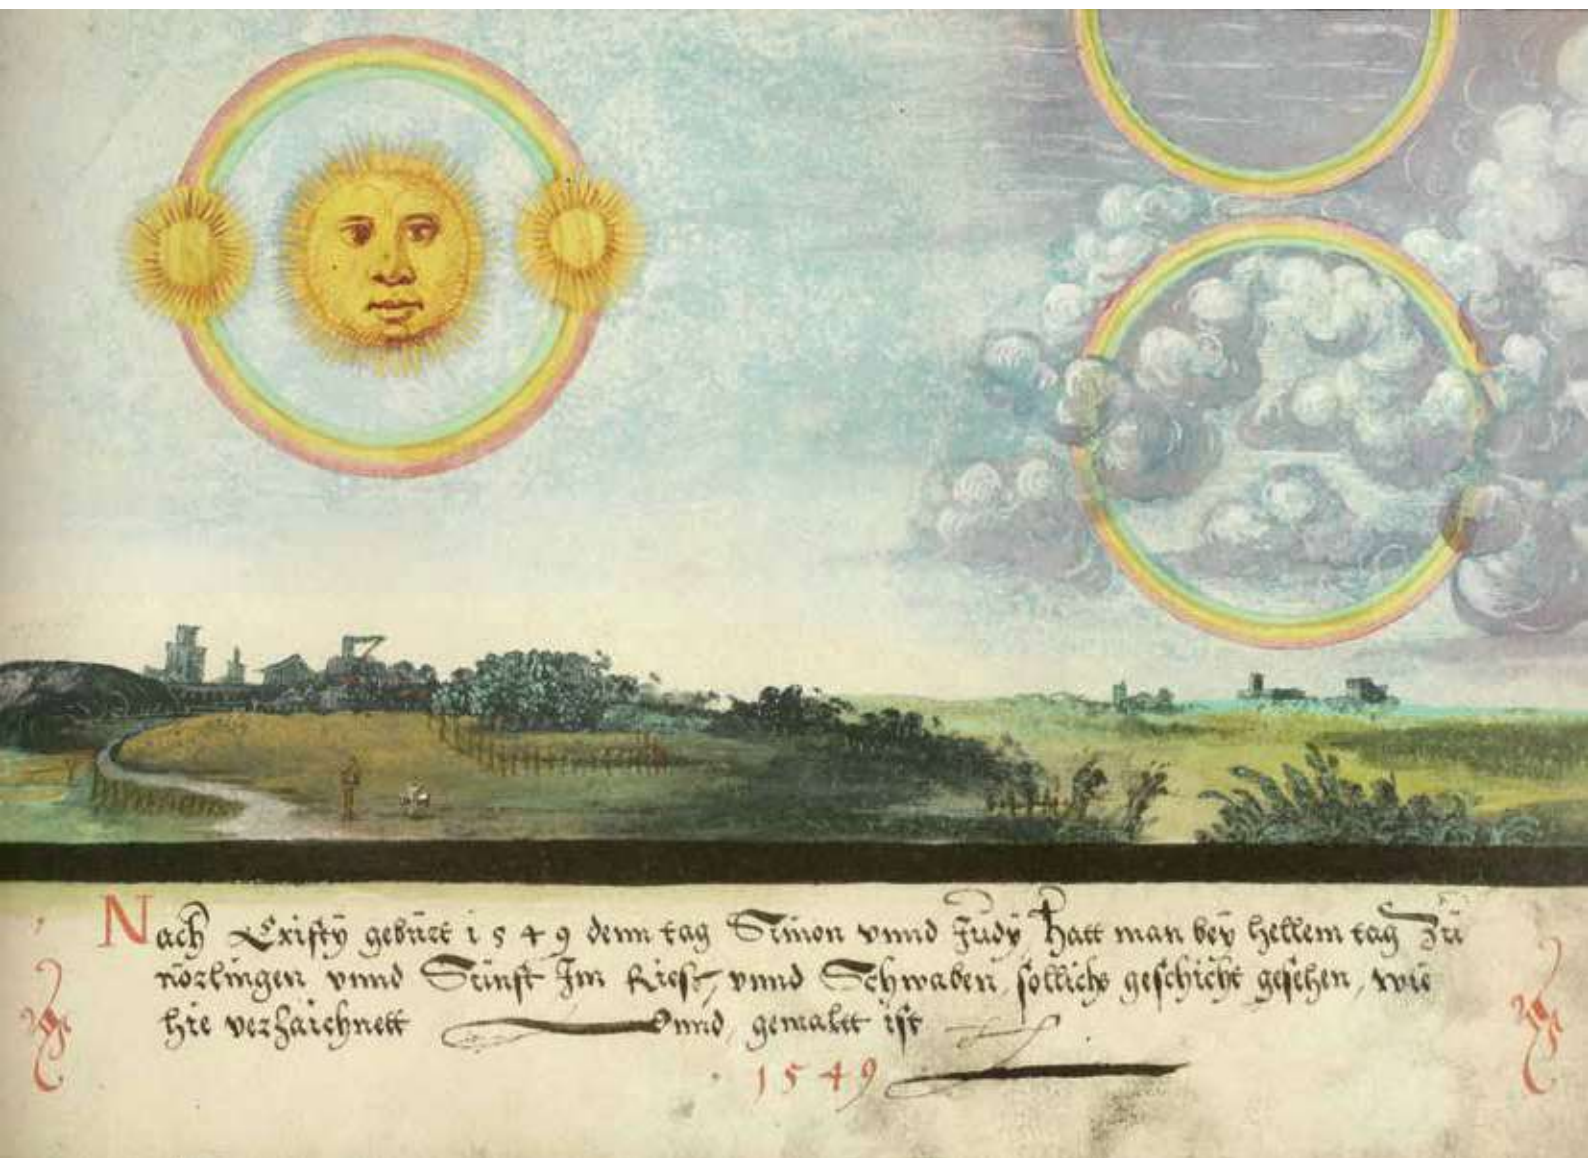 Nach Cristÿ gebürt 1549 denn tag Simon vnnd Judÿ, Hatt man beÿ hellem tag Zü
nörlingen vnnd Sünst Im Riess, vnnd Schwaben, sollichs geschicht gesehen, wie
hie verzaichnett Vnnd gemaltt ist
1549